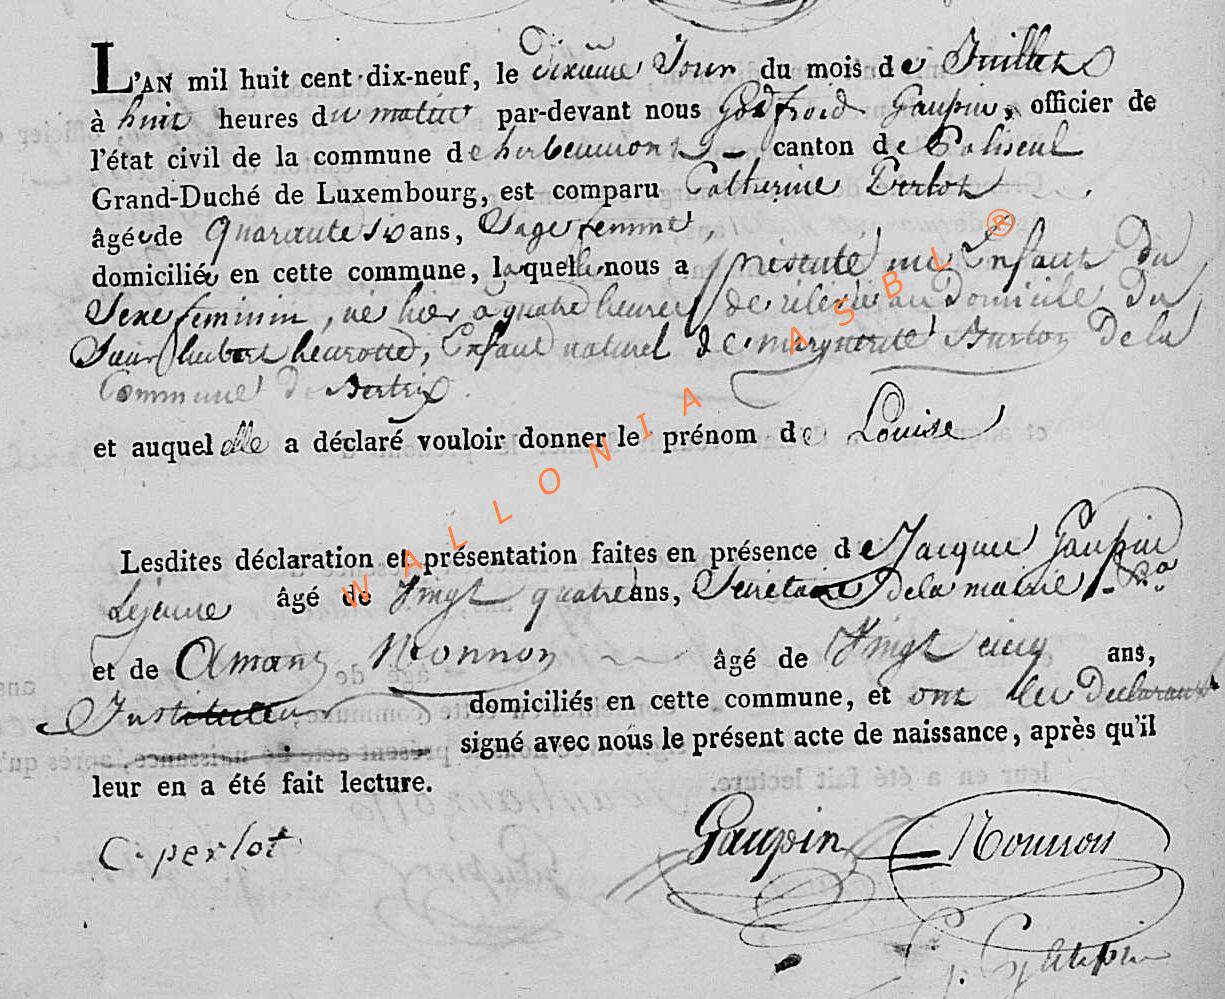 L'AN mil huit cent dix-neuf, le Dixieme Jour du mois de Juillet
à huit heures du matin par-devant nous Godfroid Gaupin, officier de
l'état civil de la commune de herbeumont canton de Paliseul
Grand-Duché de Luxembourg, est comparu Catherine Perlot
âgée de Quarante six ans, Sage femme,
domiciliée en cette commune, laquelle nous a présenté un Enfant du
Sexe feminin, né hier à quatre heures de rélévée au Domicile Du
Sieur hubert heurotte, Enfant naturel de marguerite Burton De la
Commune De Bertrix.
et auquel elle a déclaré vouloir donner le prénom de Louise
Lesdites déclaration et présentation faites en présence de Jacques Gaupin
Lejeune âgé de Vingt quatre ans, Secrétaire De la mairie
et de Amant Monnon âgé de Vingt cinq ans,
Instituteur domiciliés en cette commune, et ont les Declarants
signé avec nous le présent acte de naissance, après qu'il
leur en a été fait lecture.
C. perlot
Gaupin Nonnon
WALLONIA ASBL ®